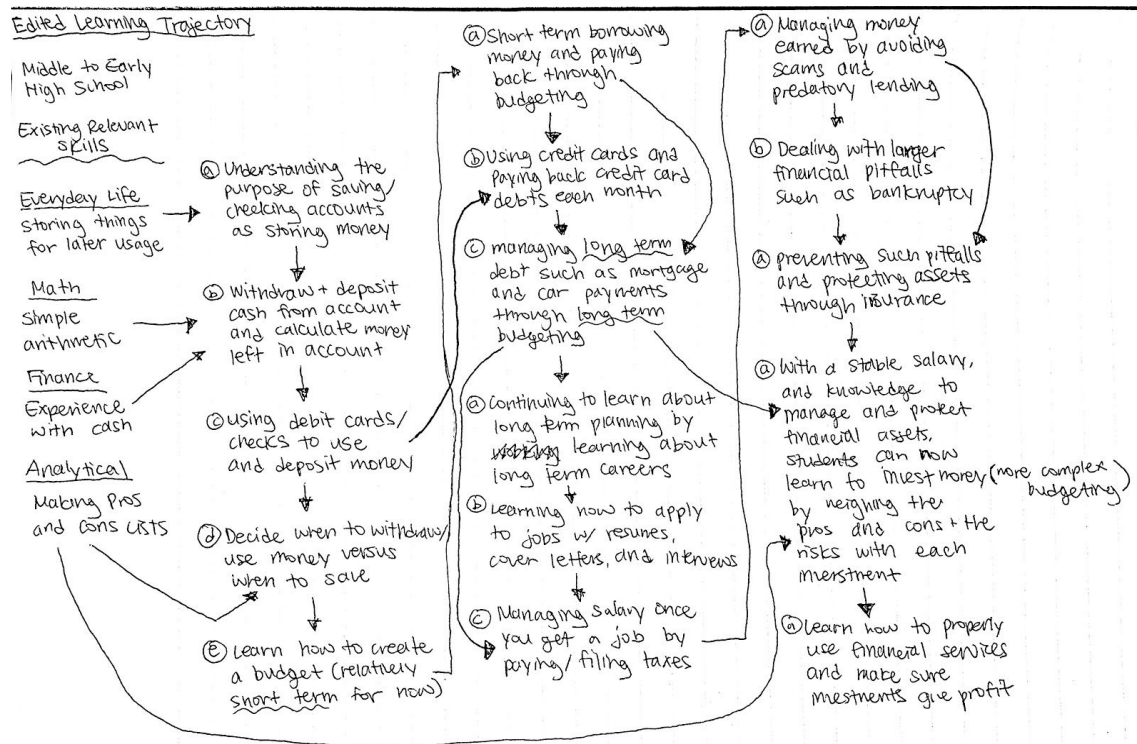 Edited Learning Trajectory
Middle to Early
High School
Existing Relevant
skills
Everyday Life
storing things
for later usage
Math
simple
arithmetic
Finance
Experience
with cash
Analytical
Making Pros
and Cons Lists
a Understanding the
purpose of saving/
checking accounts
as storing money
b Withdraw + deposit
cash from account
and calculate money
left in account
c using debit cards/
checks to use
and deposit money
d Decide when to withdraw/
use money versus
when to save
e Learn how to create
a budget (relatively
short term for now)
a Short term borrowing
money and paying
back through
budgeting
b Using credit cards and
paying back credit card
debts each month
c managing long term
debt such as mortgage
and car payments
through long term
budgeting
a Continuing to learn about
long term planning by
learning about
long term careers
b Learning how to apply
to jobs w/ resumes,
cover letters, and interviews
c Managing salary once
you get a job by
paying/filing taxes
a Managing money
earned by avoiding
scams and
predatory lending
b Dealing with larger
financial pitfalls
such as bankruptcy
a preventing such pitfalls
and protecting assets
through insurance
a With a stable salary,
and knowledge to
manage and protect
financial assets,
students can now
learn to invest money (more complex
budgeting)
by weighing the
pros and cons + the
risks with each
investment
a Learn how to properly
use financial services
and make sure
investments give profit